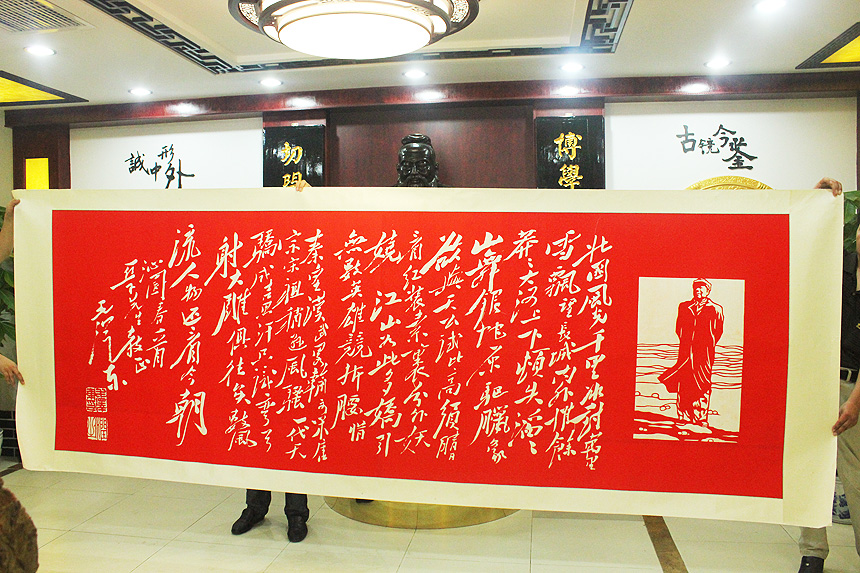 誠中形外
切問
博學
古镜今鉴
北国風光千里冰封萬里
雪飄望長城内外惟餘
莽莽大河上下頓失滔滔
山舞銀蛇原驅臘象
欲與天公試比高須晴
日看红裝素裹分外妖
嬈江山如此多嬌引
無數英雄競折腰惜
秦皇漢武略輸文采唐
宗宋祖稍遜風騷一代天
驕成吉思汗只識彎弓
射大雕俱往矣數風
流人物還看今朝
沁園春一首
亞子先生教正
毛泽东